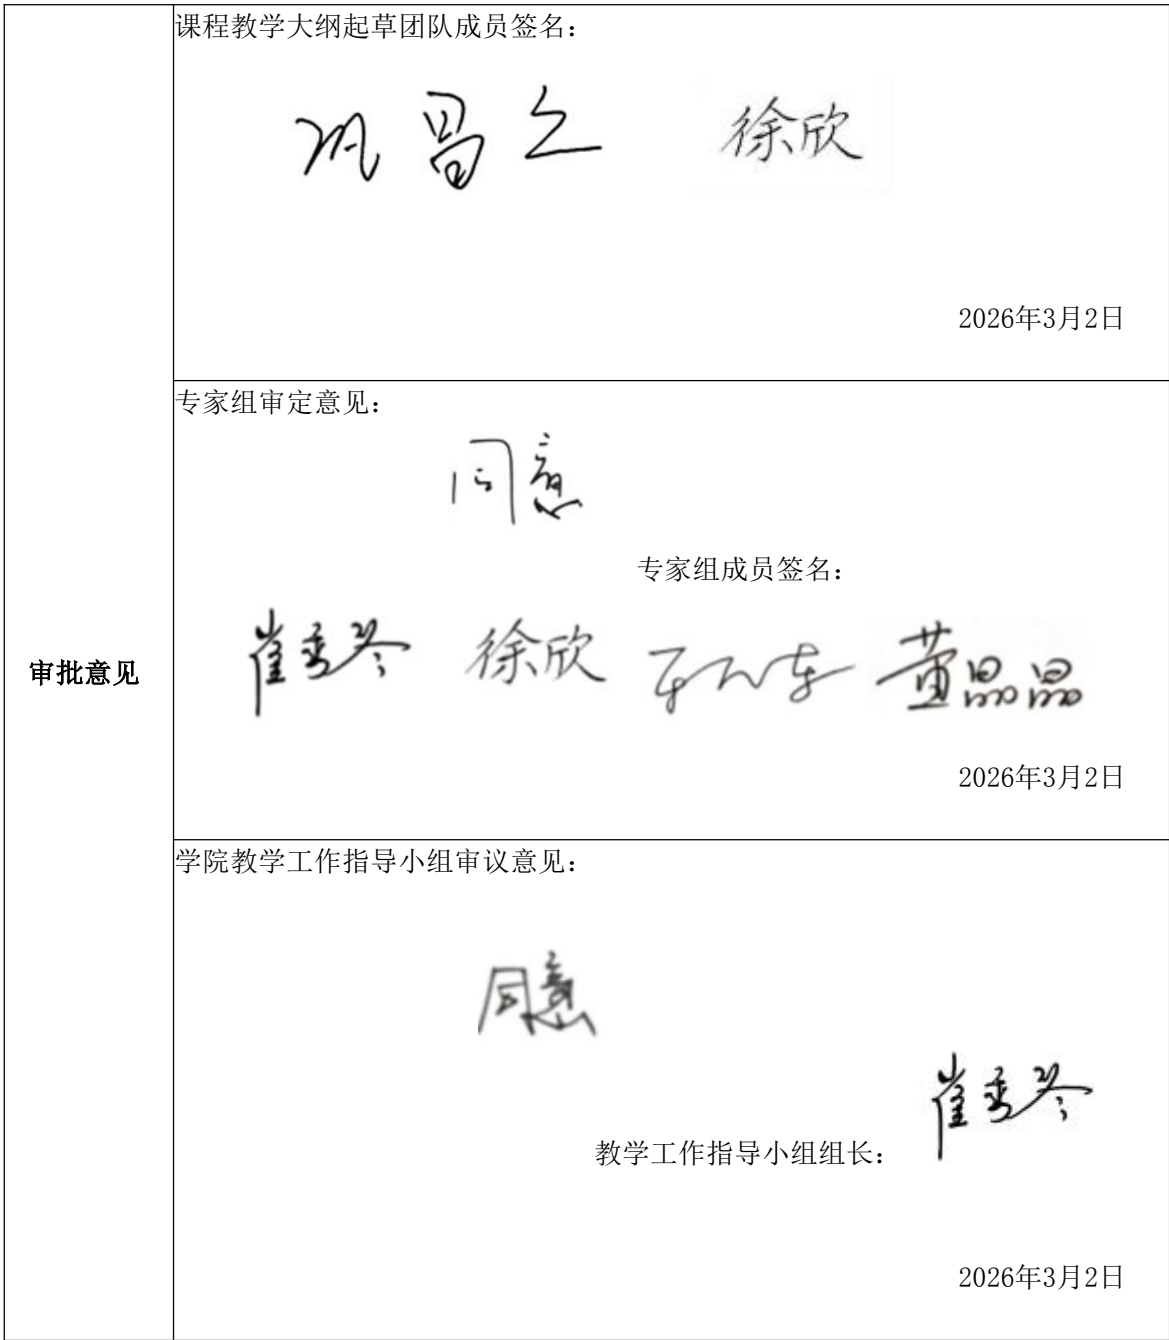 课程教学大纲起草团队成员签名：
徐欣
2026年3月2日
专家组审定意见：
同意
专家组成员签名：
崔秀琴 徐欣 黄晶晶
2026年3月2日
审批意见
学院教学工作指导小组审议意见：
同意
崔秀琴
教学工作指导小组组长：
2026年3月2日